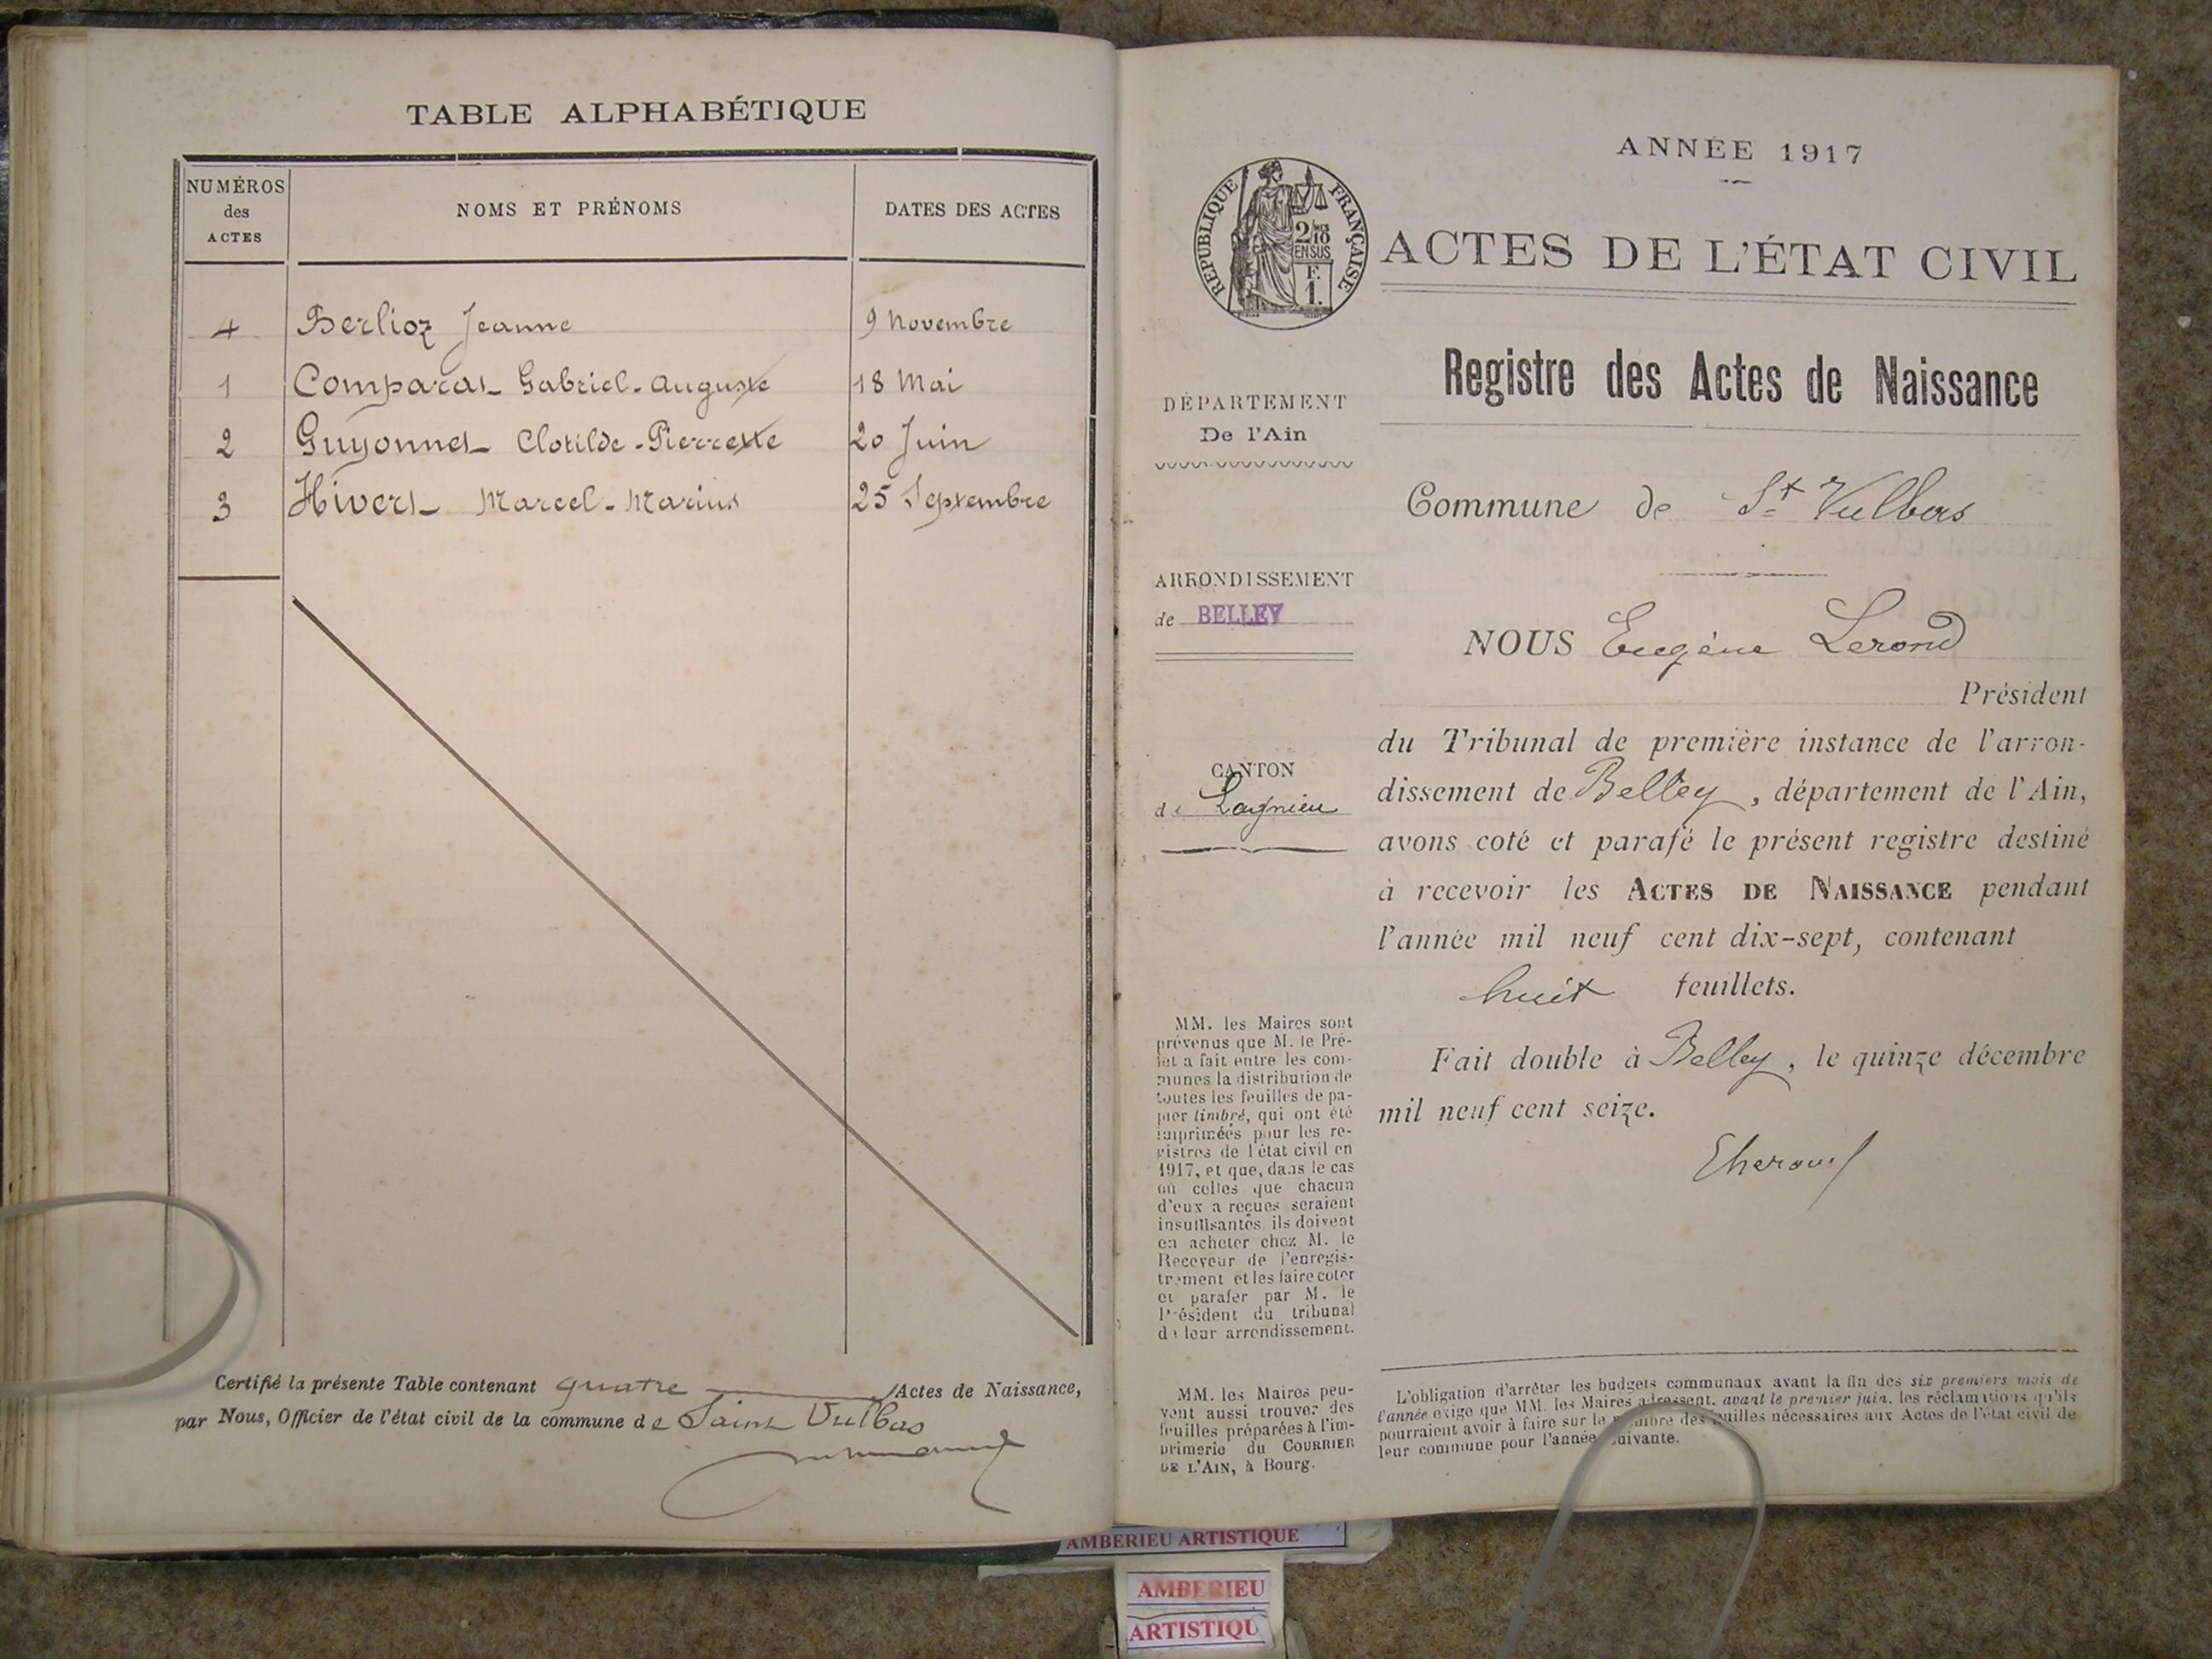 TABLE ALPHABÉTIQUE
NUMÉROS des ACTES NOMS ET PRÉNOMS DATES DES ACTES
4 Berlioz Jeanne 9 Novembre
1 Comparat Gabriel-Auguste 18 Mai
2 Guyonnet Clotilde-Pierrette 20 Juin
3 Hivert Marcel-Marius 25 Septembre
Certifié la présente Table contenant quatre Actes de Naissance,
par Nous, Officier de l'état civil de la commune de Saint Vulbas
ANNÉE 1917
RÉPUBLIQUE FRANÇAISE
2/10 EN SUS
F. 1.
ACTES DE L'ÉTAT CIVIL
Registre des Actes de Naissance
DÉPARTEMENT
De l'Ain
Commune de St Vulbas
ARRONDISSEMENT
de BELLEY
NOUS Eugène Lerond
Président
du Tribunal de première instance de l'arron-
dissement de Belley, département de l'Ain,
CANTON
de Lagnieu
avons coté et parafé le présent registre destiné
à recevoir les ACTES DE NAISSANCE pendant
l'année mil neuf cent dix-sept, contenant
huit feuillets.
Fait double à Belley, le quinze décembre
mil neuf cent seize.
MM. les Maires sont
prévenus que M. le Pré-
fet a fait entre les com-
munes la distribution de
toutes les feuilles de pa-
pier timbré, qui ont été
imprimées pour les re-
gistres de l'état civil en
1917, et que, dans le cas
où celles que chacun
d'eux a reçues seraient
insuffisantes, ils doivent
en acheter chez M. le
Receveur de l'enregis-
trement et les faire coter
et parafer par M. le
Président du tribunal
de leur arrondissement.
MM. les Maires peu-
vent aussi trouver des
feuilles préparées à l'im-
primerie du COURRIER
DE L'AIN, à Bourg.
L'obligation d'arrêter les budgets communaux avant la fin des six premiers mois de
l'année exige que MM. les Maires adressent, avant le premier juin, les réclamations qu'ils
pourraient avoir à faire sur le nombre des feuilles nécessaires aux Actes de l'état civil de
leur commune pour l'année suivante.
AMBERIEU ARTISTIQUE
AMBERIEU
ARTISTIQU